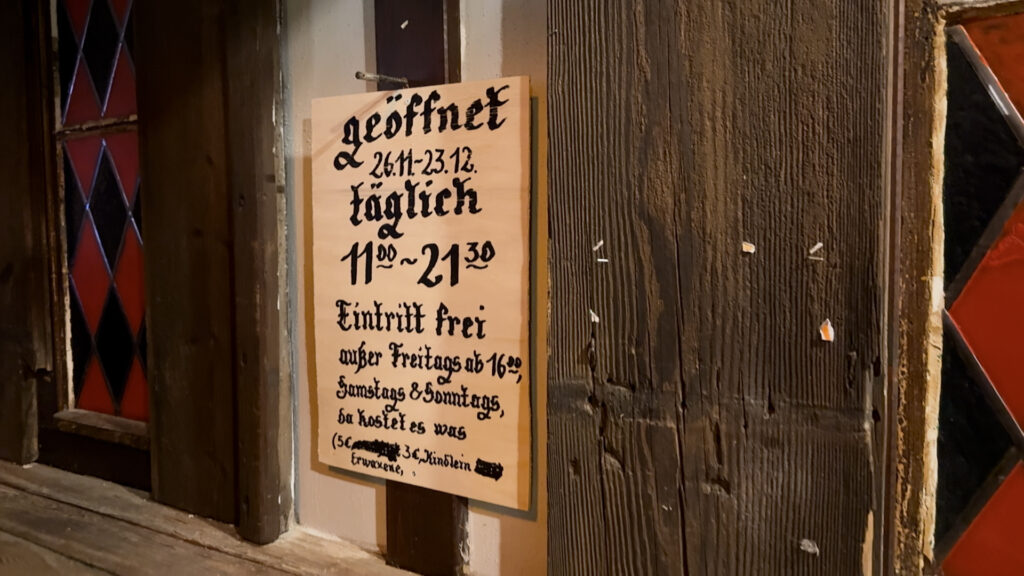 geöffnet
26.11-23.12.
täglich
11⁰⁰~21³⁰
Eintritt frei
außer Freitags ab 16⁰⁰,
Samstags & Sonntags,
da kostet es was
(5€, 3€, Kindlein
Erwaxene,